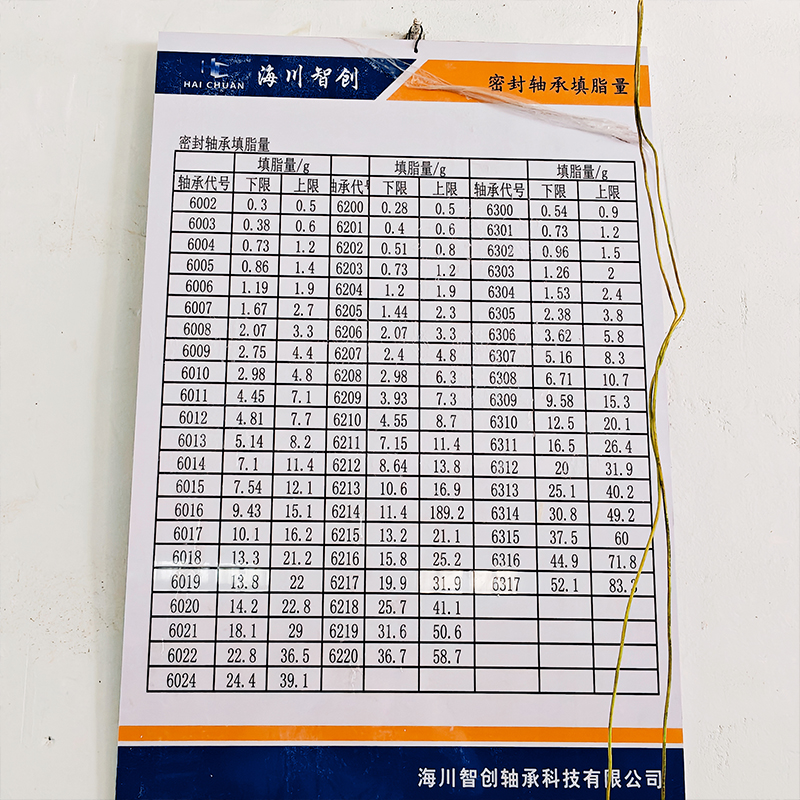 HAI CHUAN 海川智创 密封轴承填脂量
密封轴承填脂量
填脂量/g 填脂量/g 填脂量/g
轴承代号 下限 上限 轴承代号 下限 上限 轴承代号 下限 上限
6002 0.3 0.5 6200 0.28 0.5 6300 0.54 0.9
6003 0.38 0.6 6201 0.4 0.6 6301 0.73 1.2
6004 0.73 1.2 6202 0.51 0.8 6302 0.96 1.5
6005 0.86 1.4 6203 0.73 1.2 6303 1.26 2
6006 1.19 1.9 6204 1.2 1.9 6304 1.53 2.4
6007 1.67 2.7 6205 1.44 2.3 6305 2.38 3.8
6008 2.07 3.3 6206 2.07 3.3 6306 3.62 5.8
6009 2.75 4.4 6207 2.4 4.8 6307 5.16 8.3
6010 2.98 4.8 6208 2.98 6.3 6308 6.71 10.7
6011 4.45 7.1 6209 3.93 7.3 6309 9.58 15.3
6012 4.81 7.7 6210 4.55 8.7 6310 12.5 20.1
6013 5.14 8.2 6211 7.15 11.4 6311 16.5 26.4
6014 7.1 11.4 6212 8.64 13.8 6312 20 31.9
6015 7.54 12.1 6213 10.6 16.9 6313 25.1 40.2
6016 9.43 15.1 6214 11.4 189.2 6314 30.8 49.2
6017 10.1 16.2 6215 13.2 21.1 6315 37.5 60
6018 13.3 21.2 6216 15.8 25.2 6316 44.9 71.8
6019 13.8 22 6217 19.9 31.9 6317 52.1
6020 14.2 22.8 6218 25.7 41.1
6021 18.1 29 6219 31.6 50.6
6022 22.8 36.5 6220 36.7 58.7
6024 24.4 39.1
海川智创轴承科技有限公司